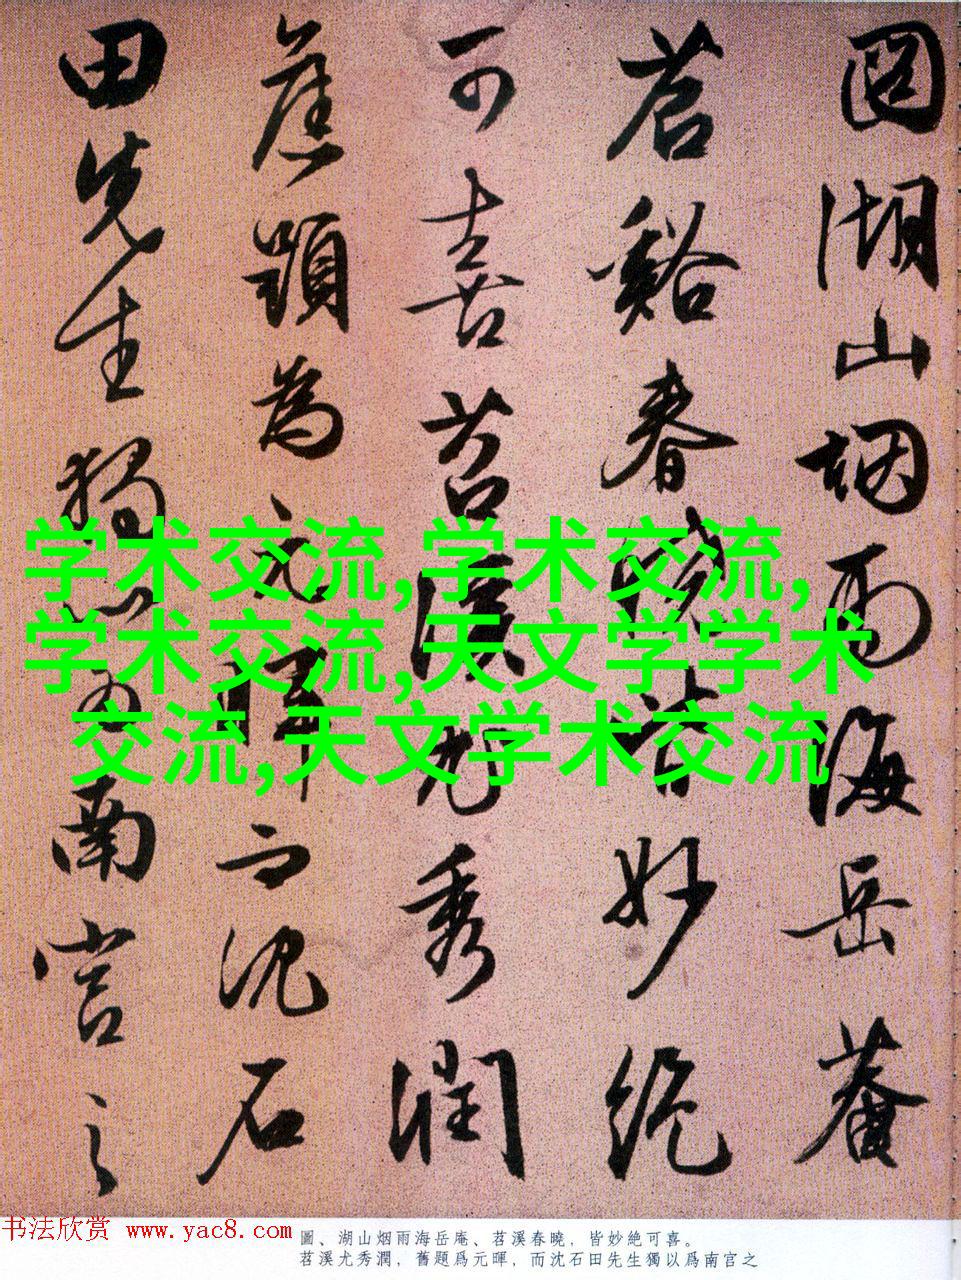 圖湖山烟雨海岳菴
苕谿春曉皆妙絶
可喜苕溪尤秀潤
舊題為元暉而沈石
田先生獨以為南宫之
学术交流,学术交流,
学术交流,天文学学术
交流,天文学术交流
书法欣赏 www.yac8.com
圖、湖山烟雨海岳庵、苕溪春曉，皆妙絶可喜。
苕溪尤秀潤，舊題爲元暉，而沈石田先生獨以爲南宫之